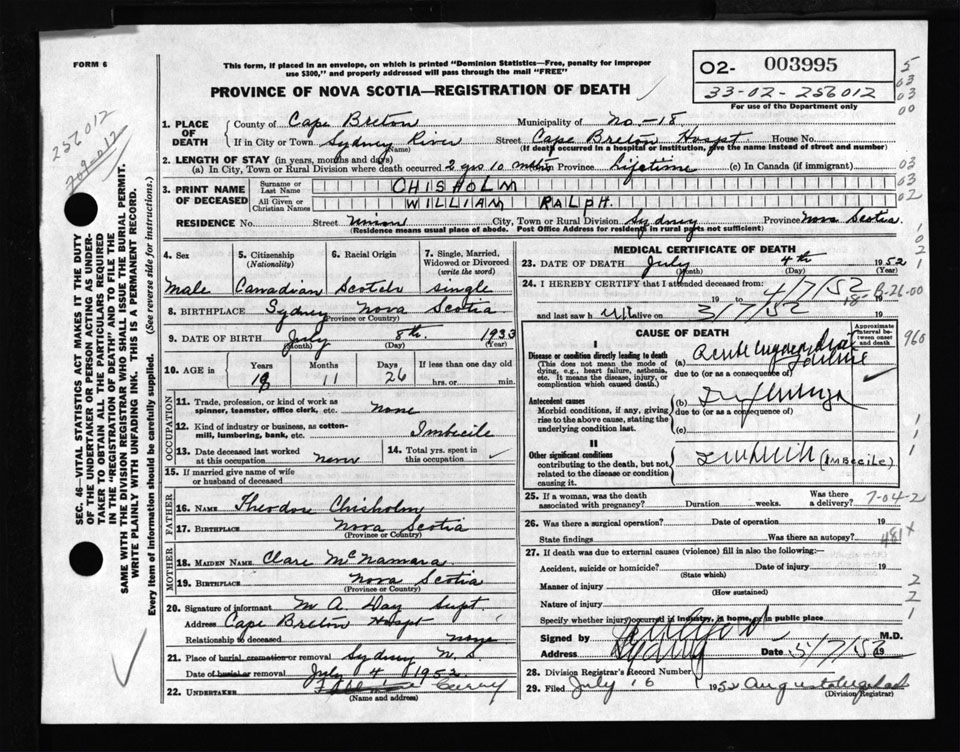 FORM 6
This form, if placed in an envelope, on which is printed "Dominion Statistics—Free, penalty for improper
use $300," and properly addressed will pass through the mail "FREE"
02- 003995
33-02-256012
For use of the Department only
PROVINCE OF NOVA SCOTIA—REGISTRATION OF DEATH
256012
5
03
03
00
1. PLACE OF DEATH
County of Cape Breton Municipality of No.-18
If in City or Town Sydney River Street Cape Breton Hospt House No.
(Name) (If death occurred in a hospital or institution, give the name instead of street and number)
2. LENGTH OF STAY (in years, months and days)
(a) In City, Town or Rural Division where death occurred 2 yrs 10 mths In Province Lifetime (c) In Canada (if immigrant)
03
03
02
3. PRINT NAME OF DECEASED
Surname or Last Name CHISHOLM
All Given or Christian Names WILLIAM RALPH.
RESIDENCE No. Street Union City, Town or Rural Division Sydney Province Nova Scotia
(Residence means usual place of abode. Post Office Address for residents in rural parts not sufficient)
4. Sex Male
5. Citizenship (Nationality) Canadian
6. Racial Origin Scotch
7. Single, Married, Widowed or Divorced (write the word) single
8. BIRTHPLACE Sydney Nova Scotia
(Province or Country)
9. DATE OF BIRTH July 8th. 1933
(Month) (Day) (Year)
10. AGE in Years Months Days If less than one day
11 26 hrs. or min.
OCCUPATION
11. Trade, profession, or kind of work as spinner, teamster, office clerk, etc. None
12. Kind of industry or business, as cotton-mill, lumbering, bank, etc. Imbecile
13. Date deceased last worked at this occupation never
14. Total yrs. spent in this occupation ✓
15. If married give name of wife or husband of deceased
FATHER
16. NAME Theodore Chisholm
17. BIRTHPLACE Nova Scotia
(Province or Country)
MOTHER
18. MAIDEN NAME Clare McNamara
19. BIRTHPLACE Nova Scotia
(Province or Country)
20. Signature of informant M A Day Supt.
Address Cape Breton Hospt
Relationship to deceased none
21. Place of burial, cremation or removal Sydney N.S.
Date of burial or removal July 4 1952
22. UNDERTAKER Curry
(Name and address)
MEDICAL CERTIFICATE OF DEATH
23. DATE OF DEATH July 4th 1952
(Month) (Day) (Year)
24. I HEREBY CERTIFY that I attended deceased from 4/7/52
19 to 19
and last saw h alive on 3/7/52 19
B-26-00
CAUSE OF DEATH
Approximate interval between onset and death
960
I
Disease or condition directly leading to death
(This does not mean the mode of dying, e.g., heart failure, asthenia, etc. It means the disease, injury, or complication which caused death.)
(a) Acute
due to (or as a consequence of)
Antecedent causes
Morbid conditions, if any, giving rise to the above cause, stating the underlying condition last.
(b)
due to (or as a consequence of)
(c)
II
Other significant conditions
contributing to the death, but not related to the disease or condition causing it.
Imbecile (IMBECILE)
25. If a woman, was the death associated with pregnancy? Duration weeks. Was there a delivery?
7-04-2
26. Was there a surgical operation? Date of operation 19
State findings Was there an autopsy?
481 X
27. If death was due to external causes (violence) fill in also the following:—
Accident, suicide or homicide? Date of injury 19
(State which)
Manner of injury
(How sustained)
Nature of injury
Specify whether injury occurred in industry, in home, or in public place
Signed by M.D.
Address Sydney Date 5/7/52 19
28. Division Registrar's Record Number
29. Filed July 16 1952
(Division Registrar)
SEC. 46—VITAL STATISTICS ACT MAKES IT THE DUTY
OF THE UNDERTAKER OR PERSON ACTING AS UNDER-
TAKER TO OBTAIN ALL THE PARTICULARS REQUIRED
IN THE "REGISTRATION OF DEATH" AND TO FILE THE
SAME WITH THE DIVISION REGISTRAR WHO SHALL ISSUE THE BURIAL PERMIT.
WRITE PLAINLY WITH UNFADING INK. THIS IS A PERMANENT RECORD.
Every item of information should be carefully supplied. (See reverse side for instructions.)